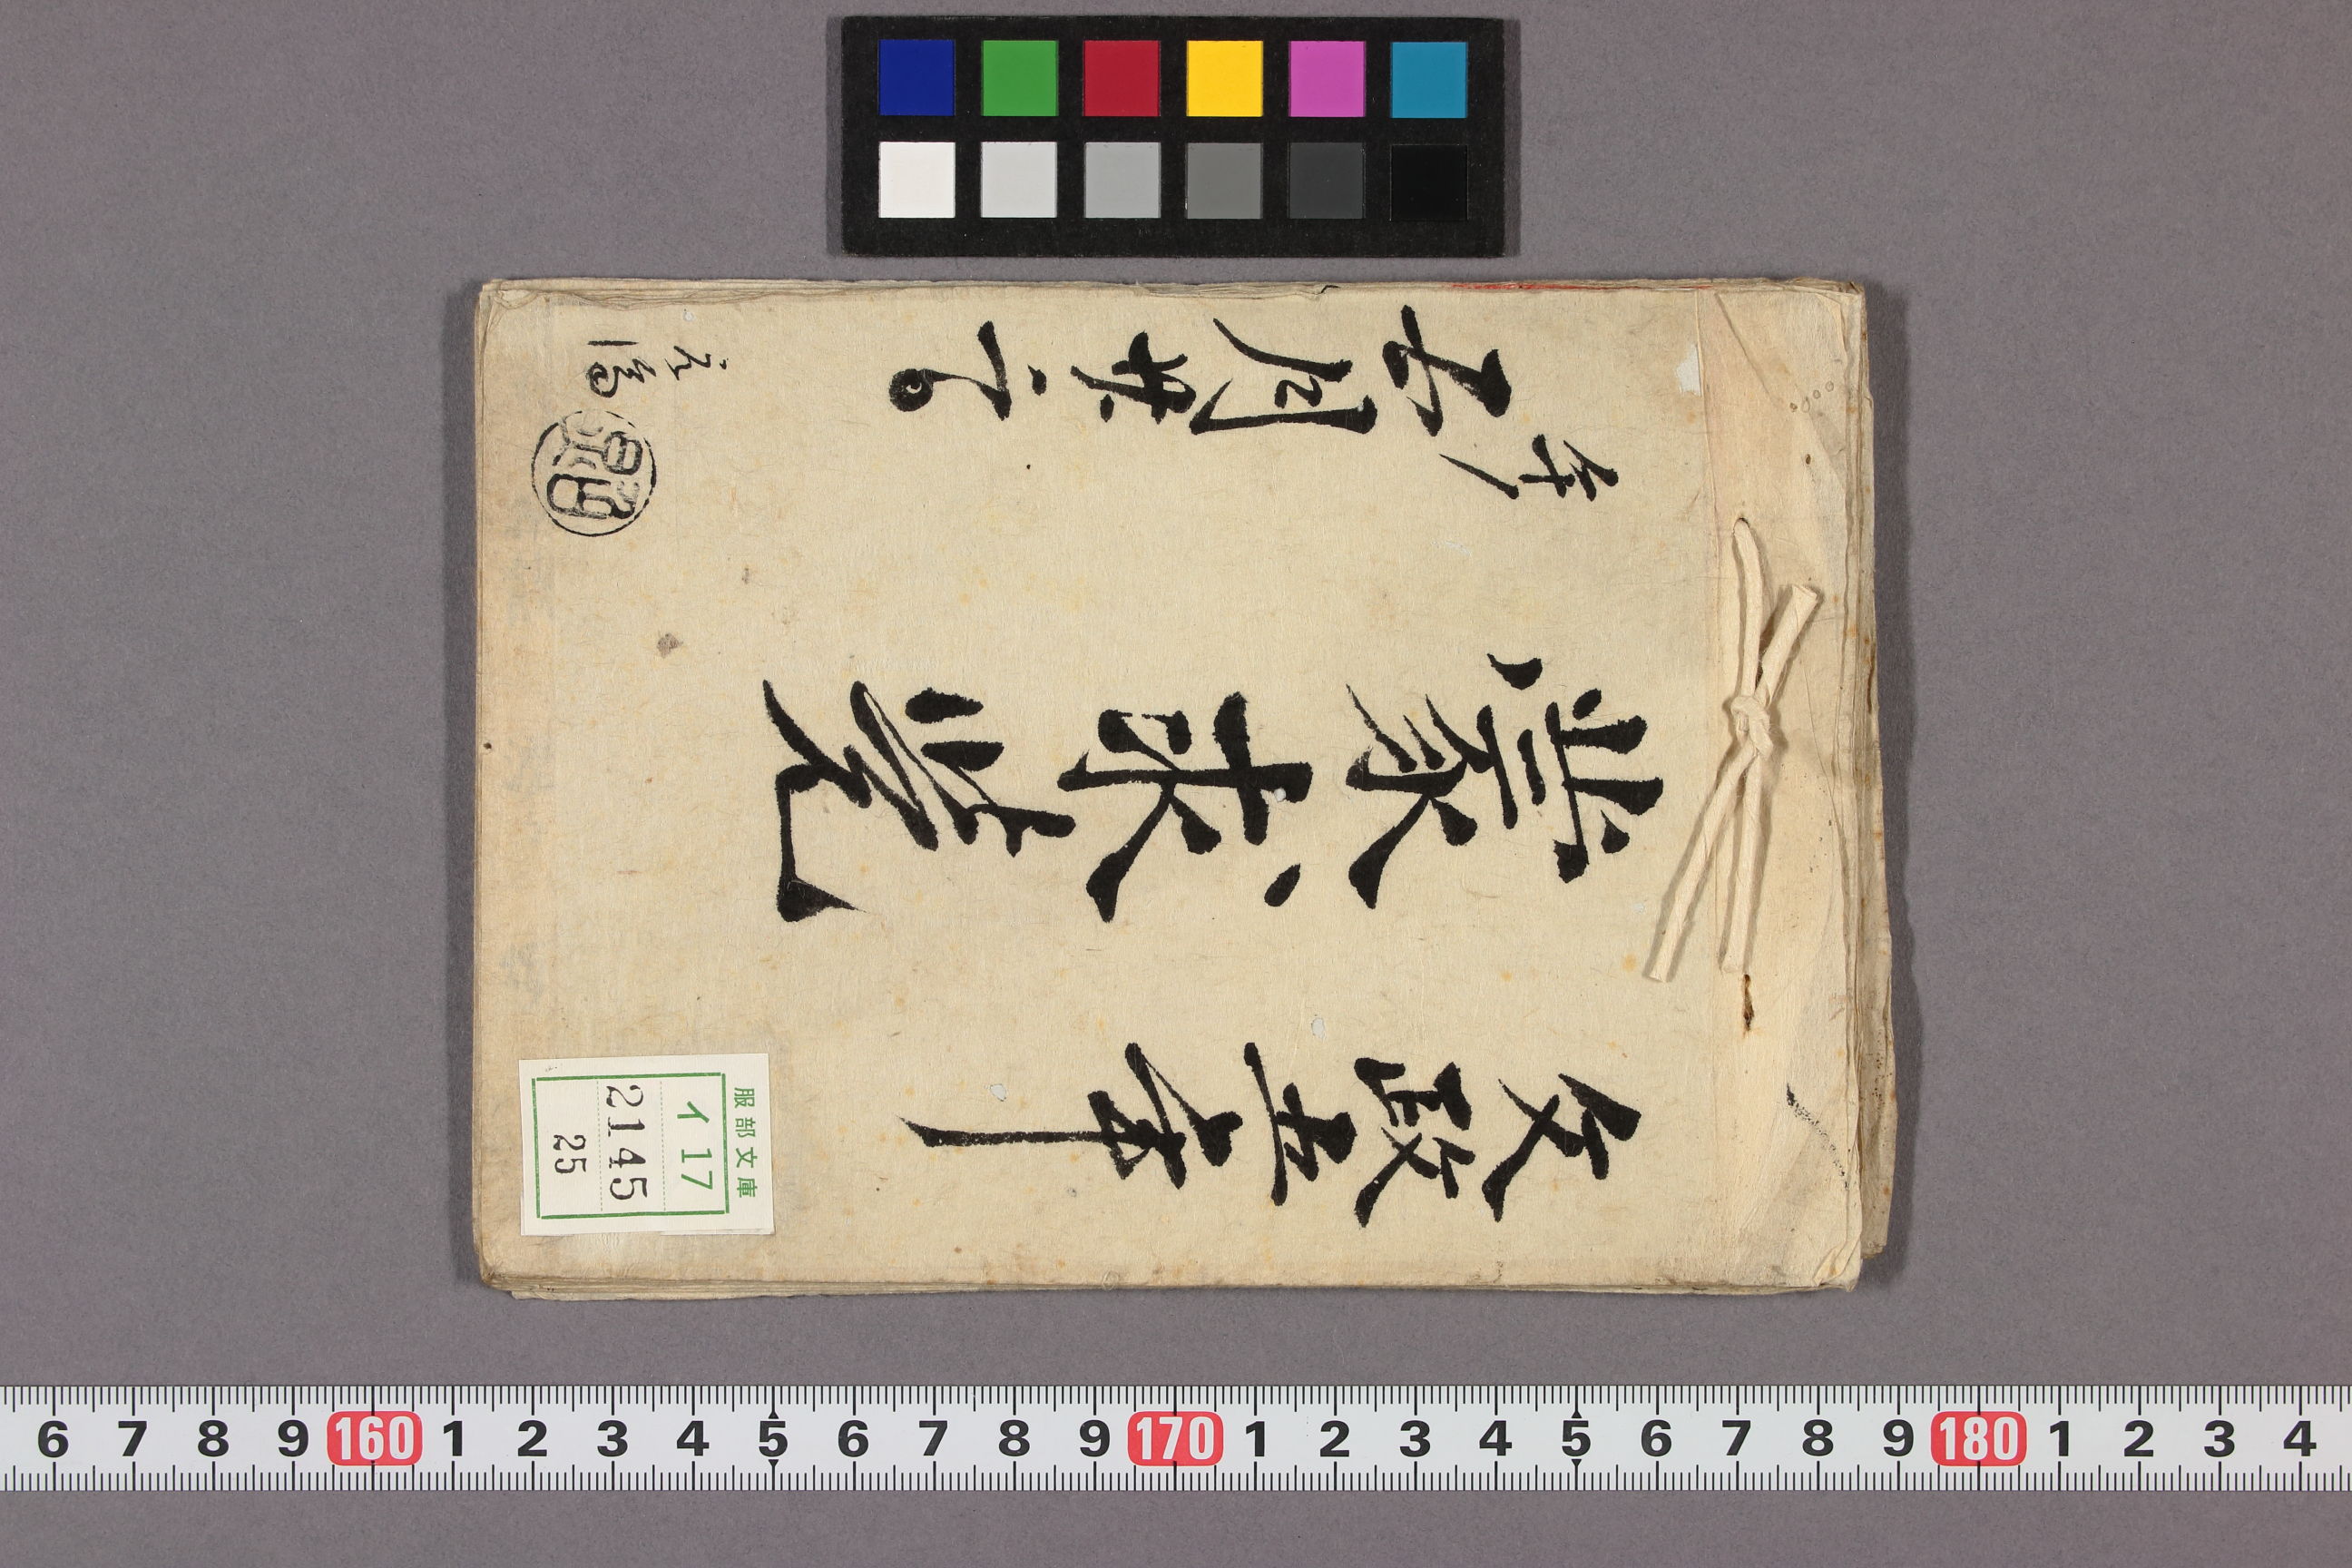 文政五年
蒙求覚
午
五月廿二日
服部文庫
イ17
2145
25
6 7 8 9 160 1 2 3 4 5 6 7 8 9 170 1 2 3 4 5 6 7 8 9 180 1 2 3 4